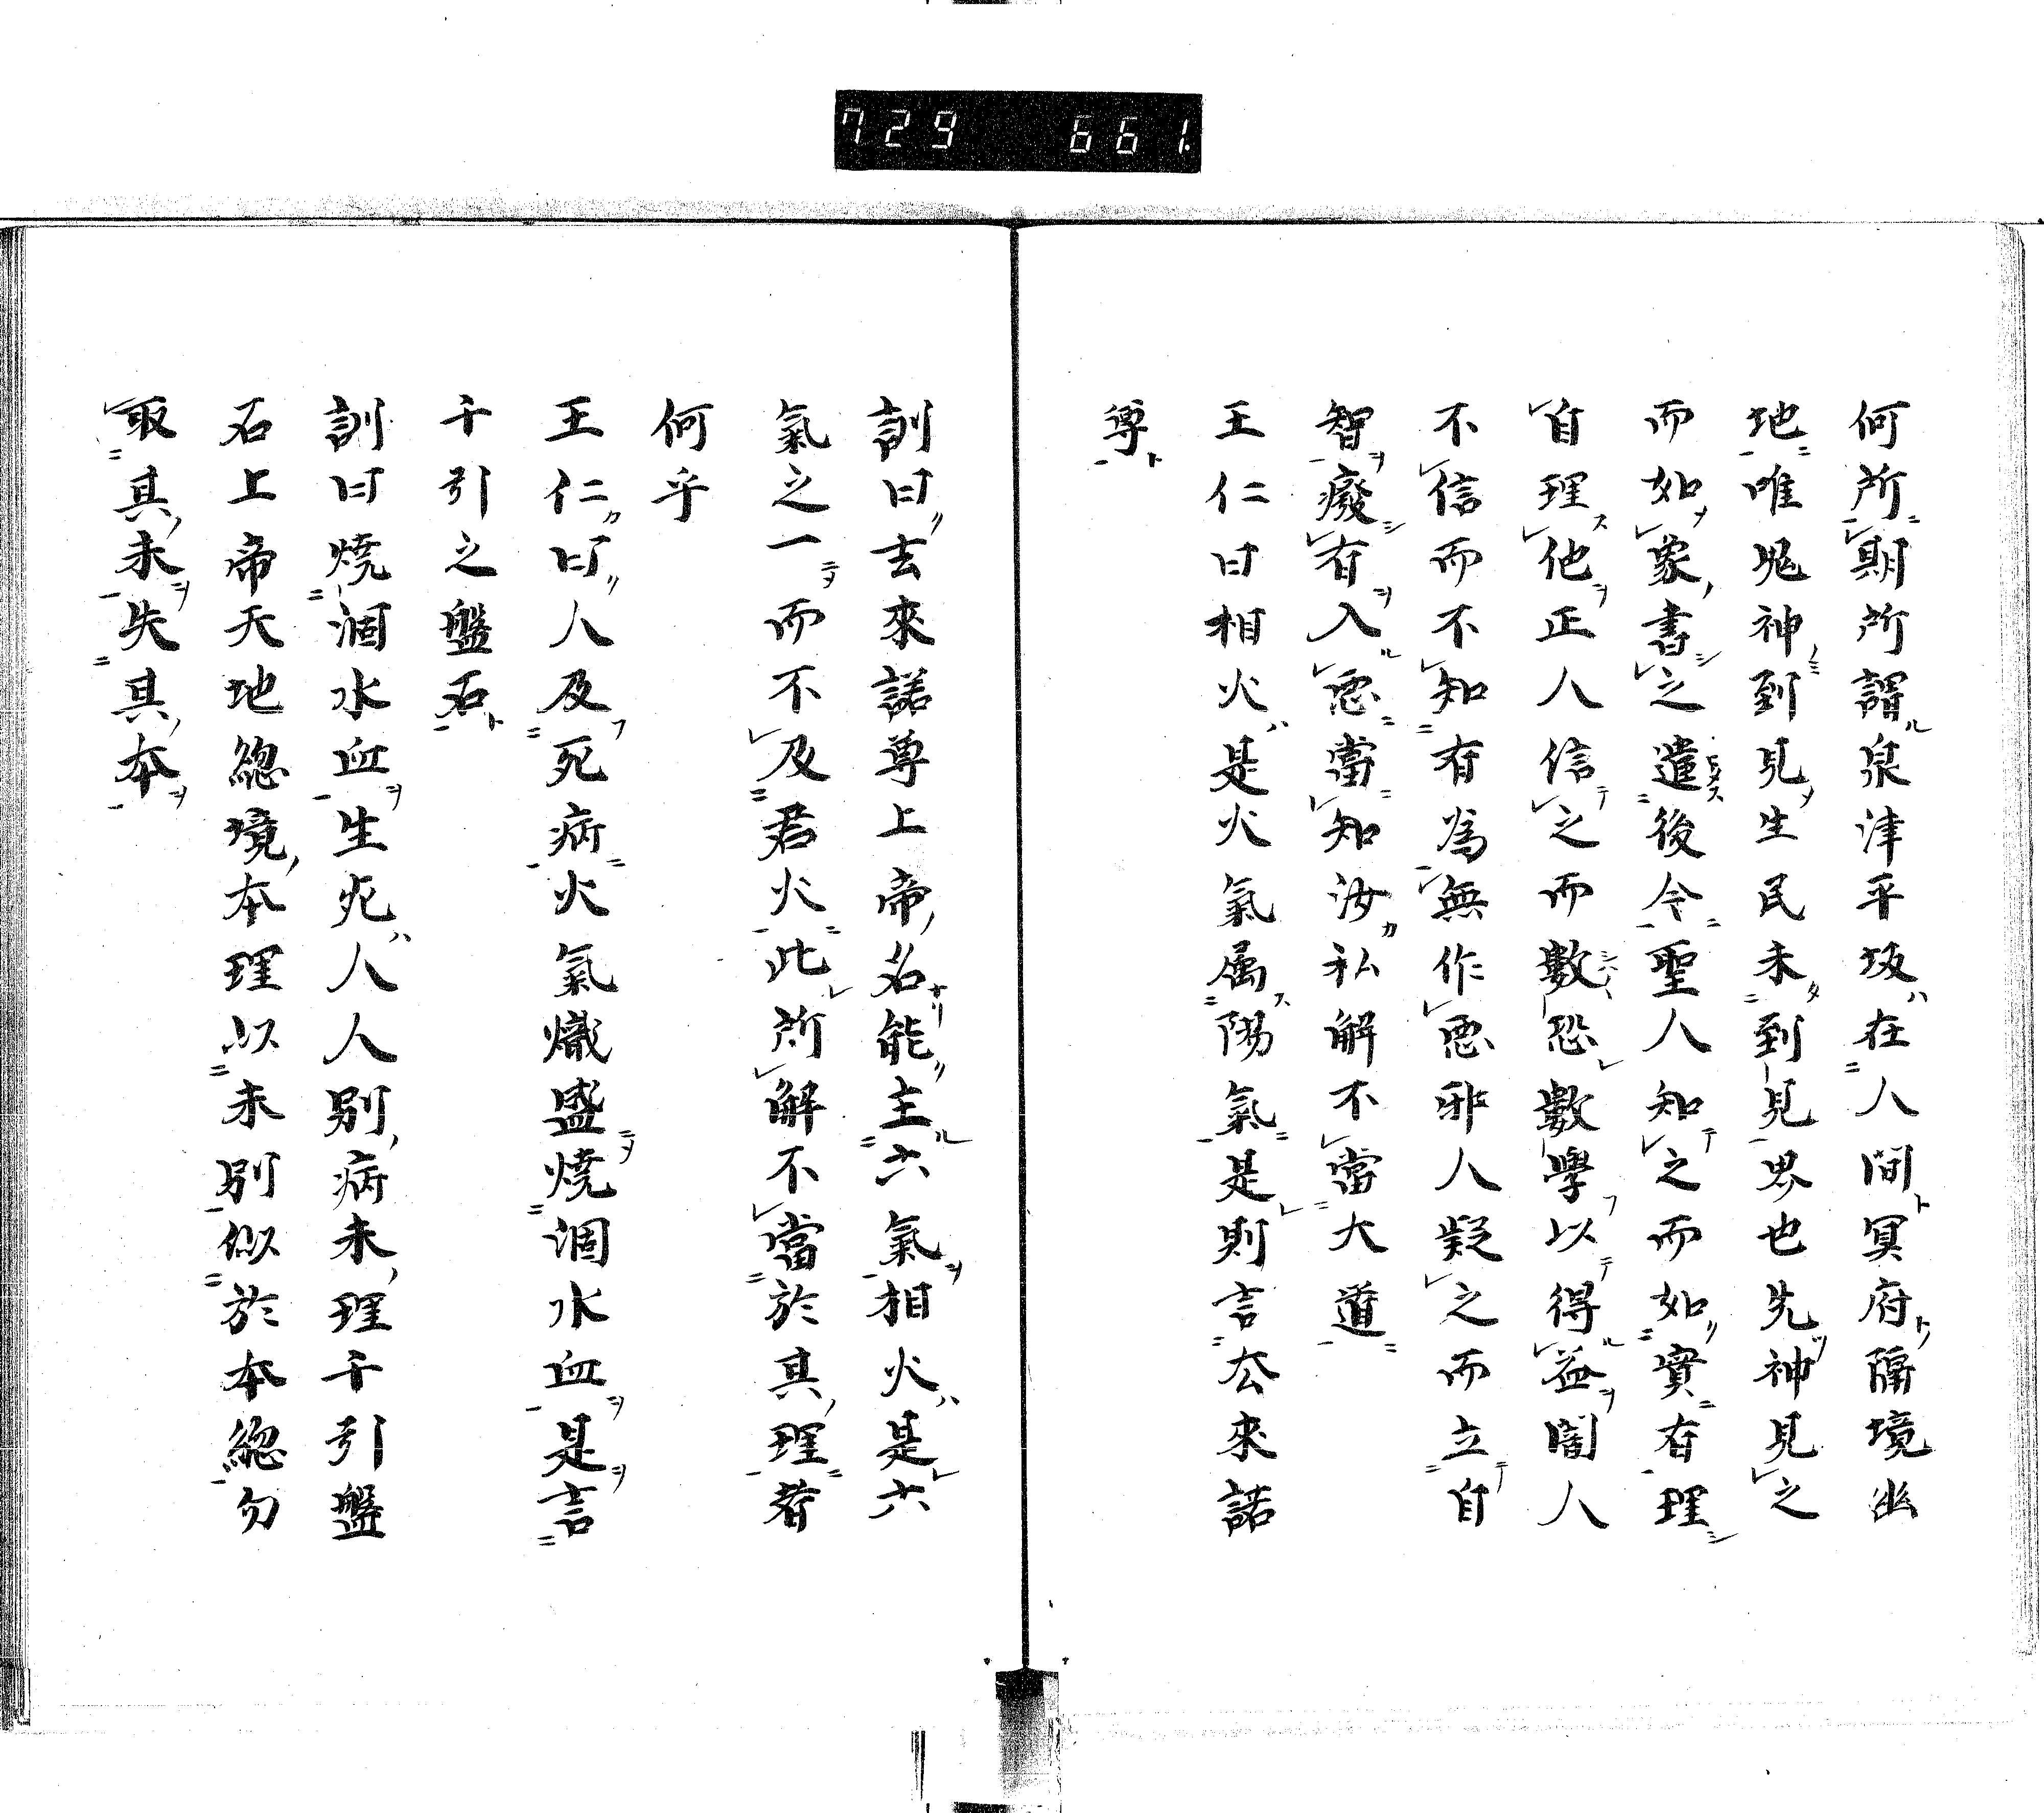 729 661.
何所期所謂泉津平坂在人間冥府隔境幽
地唯鬼神到見生民未到見界也先神見之
而如象書之遣後令聖人知之而如實有理
自理他正人信之而數恐數學以得益闇人
不信而不知有為無作惡邪人疑之而立自
智癈有入惡當知汝私解不當大道
王仁曰相火是火氣属陽氣是則言厺來諾
尊
訓曰去來諾尊上帝名能主六氣相火是六
氣之一而不及君火此所解不當於其理者
何乎
王仁曰人及死病火氣熾盛燒涸水血是言
千引之盤石
訓曰燒涸水血生死人人別病末理千引盤
石上帝天地總境本理以末別似於本總勿
取其末失其本